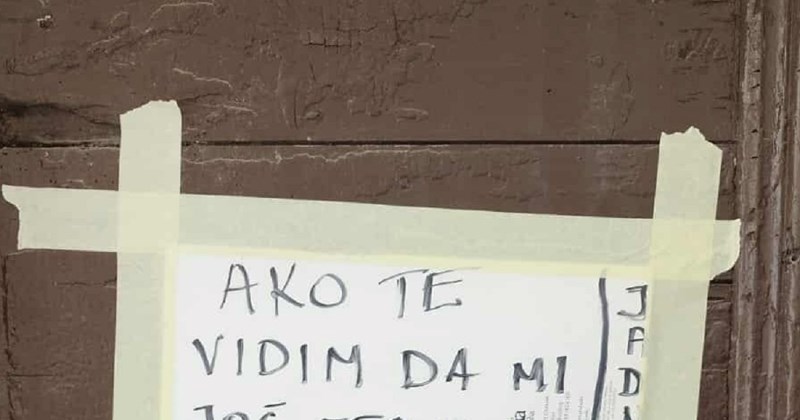 AKO TE
VIDIM DA MI
JOŠ
JAD